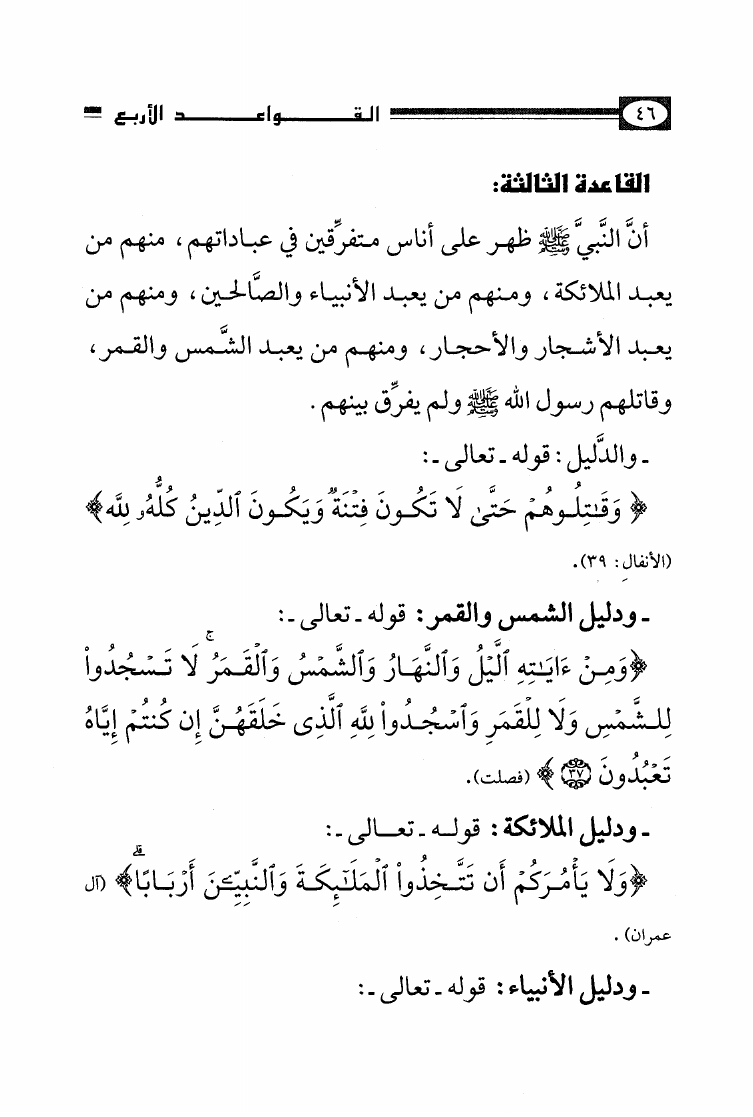 ٤٦ القـــواعـــد الأربـع
القاعدة الثالثة:
أنَّ النَّبيَّ ﷺ ظهر على أناس متفرِّقين في عباداتهم، منهم من
يعبد الملائكة، ومنهم من يعبد الأنبياء والصَّالحين، ومنهم من
يعبد الأشجار والأحجار، ومنهم من يعبد الشَّمس والقمر،
وقاتلهم رسول الله ﷺ ولم يفرِّق بينهم.
ـ والدَّليل: قوله ـ تعالى ـ:
﴿وَقَٰتِلُوهُمْ حَتَّىٰ لَا تَكُونَ فِتْنَةٌ وَيَكُونَ ٱلدِّينُ كُلُّهُۥ لِلَّهِ﴾
(الأنفال: ٣٩).
ـ ودليل الشمس والقمر: قوله ـ تعالى ـ:
﴿وَمِنْ ءَايَٰتِهِ ٱلَّيْلُ وَٱلنَّهَارُ وَٱلشَّمْسُ وَٱلْقَمَرُ ۚ لَا تَسْجُدُوا۟
لِلشَّمْسِ وَلَا لِلْقَمَرِ وَٱسْجُدُوا۟ لِلَّهِ ٱلَّذِى خَلَقَهُنَّ إِن كُنتُمْ إِيَّاهُ
تَعْبُدُونَ ٣٧﴾ (فصلت).
ـ ودليل الملائكة: قولـه ـ تعـالى ـ:
﴿وَلَا يَأْمُرَكُمْ أَن تَتَّخِذُوا۟ ٱلْمَلَٰٓئِكَةَ وَٱلنَّبِيِّـۧنَ أَرْبَابًا ۗ﴾ (آل
عمران).
ـ ودليل الأنبياء: قوله ـ تعالى ـ: